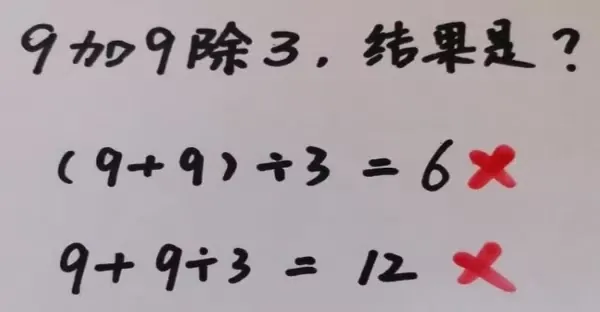 9加9除3.结果是?
(9+9)÷3=6×
9+9÷3=12×